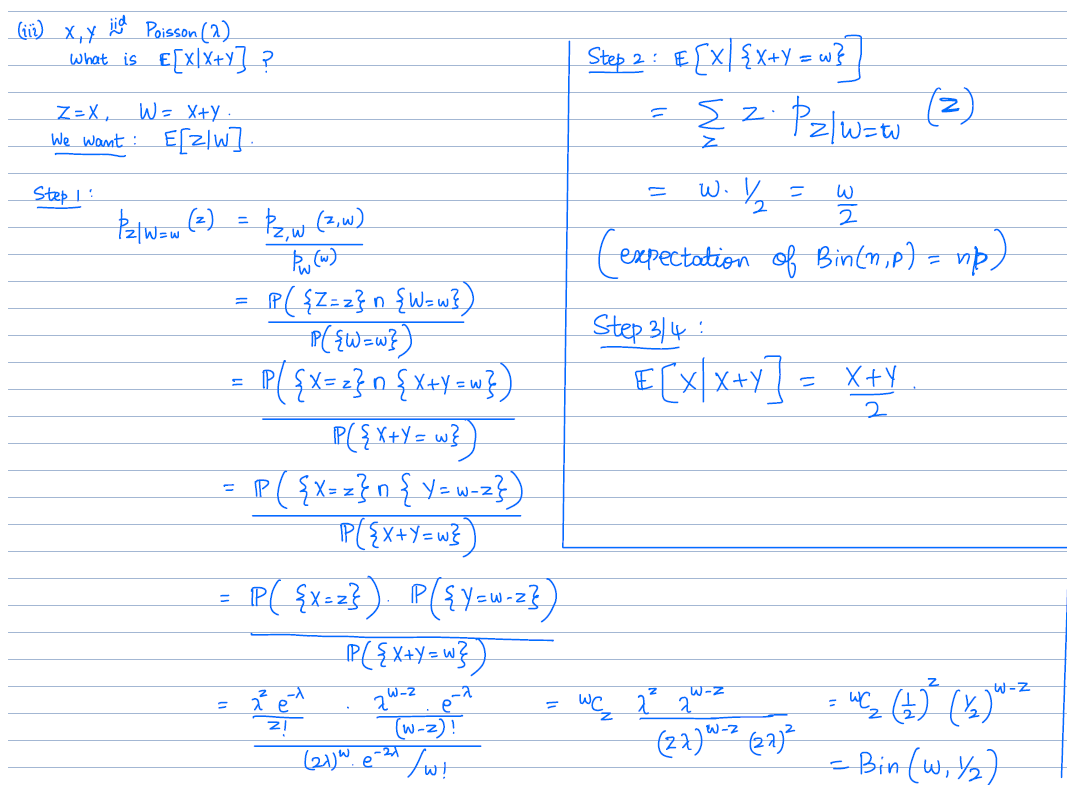 (iii) X, Y iid~ Poisson(λ)
What is E[X|X+Y] ?
Z=X, W= X+Y.
We want : E[Z|W].
Step 1 :
p_{Z|W=w}(z) = p_{Z,W}(z,w) / p_W(w)
= ℙ({Z=z} ∩ {W=w}) / ℙ({W=w})
= ℙ({X=z} ∩ {X+Y=w}) / ℙ({X+Y=w})
= ℙ({X=z} ∩ {Y=w-z}) / ℙ({X+Y=w})
= ℙ({X=z}). ℙ({Y=w-z}) / ℙ({X+Y=w})
= (λ^z e^{-λ} / z! . λ^{w-z}. e^{-λ} / (w-z)!) / ((2λ)^w. e^{-2λ} / w!) = ^wC_z λ^z λ^{w-z} / ((2λ)^{w-z} (2λ)^2) = ^wC_z (1/2)^z (1/2)^{w-z}
= Bin(w, 1/2)
Step 2 : E[X|{X+Y=w}]
= Σ_z z. p_{Z|W=w}(z)
= w. 1/2 = w/2
(expectation of Bin(n,p) = np)
Step 3/4 :
E[X|X+Y] = X+Y / 2 .